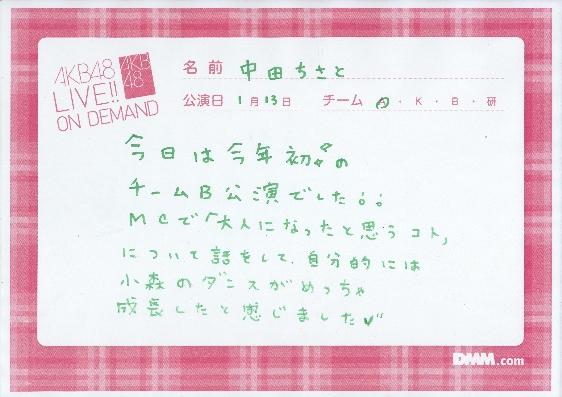 AKB48
LIVE!!
ON DEMAND
AKB
48
名前 中田ちさと
公演日 1月13日 チーム A・K・B・研
今日は今年初々の
チームB公演でした
MCで「大人になったと思うコト」
について話をして、自分的には
小森のダンスがめっちゃ
成長したと感じました
DMM.com